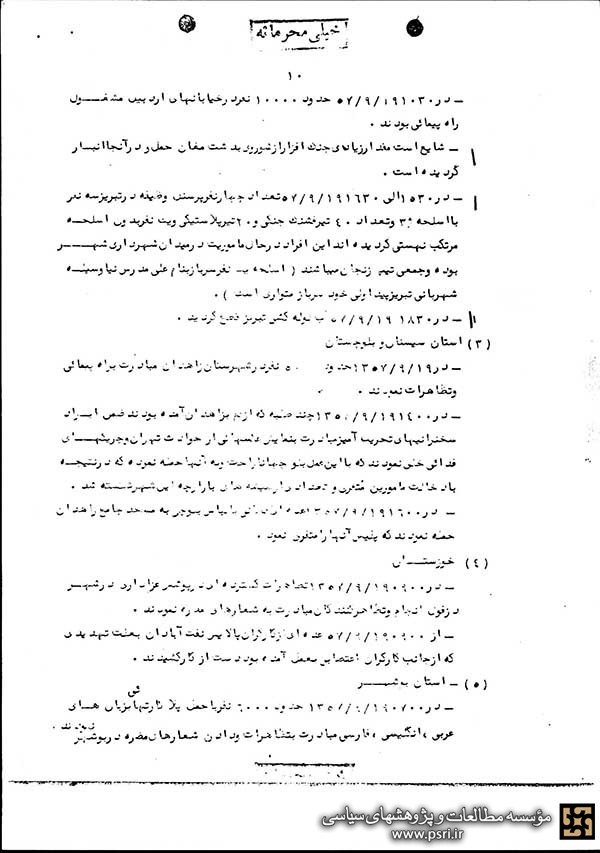 خیلی محرمانه
۱۰
ـ در ۱۹۱۰۳۰/۹/۵۷ حدود ۱۰۰۰۰ نفر در خیابانهای اردبیل مشغول
راه پیمائی بودند .
ـ شایع است مقدارزیادی جنگ افزار از شوروی بدشت مغان حمل و در آنجا انبار
گردیده است .
ـ در ۱۵۳۰ الی ۱۹۱۶۳۰/۹/۵۷ تعداد چهارنفرپرسنل وظیفه در تبریز سه نفر
با اسلحه و تعداد ۴۰ تیرفشنگ جنگی و ۲۰ تیرپلاستیکی ویک نفربدون اسلحه
مرتکب نهستی گردیده اند این افراد در حال ماموریت در میدان شهرداری شهر
بوده وجمعی تیپ زنجان میباشند ( اسلحه یک نفر سرباز بنام علی مدرس نیا وسیله
شهربانی تبریز پیدا ولی خود سرباز متواری است ) .
ـ در ۱۹۱۸۳۰/۹/ آب لوله کشی تبریز قطع گردید .
(۳) استان سیستان و بلوچستان
ـ در ۱۹/۹/۱۳۵۷ حدود نفر در شهرستان زاهدان مبادرت براه پیمائی
وتظاهرات نمودند .
ـ در ۱۹۱۴۰۰/۹/ چند طلبه که از قم بزاهدان آمده بودند ضمن ایراد
سخنرانیهای تحریک آمیز مبادرت بنمایش از حوادث تهران وچریکهای
فدائی خلق نمودند که با این عمل بلوچها ناراحت وبه آنها حمله نموده که در نتیجه
با دخالت مامورین متفرق و تعدادی از شیشه های بازارچه این شهر شکسته شد .
ـ در ۱۹۱۶۰۰/۹/۱۳۵۷ عده ای با لباس بلوچی به مسجد جامع زاهدان
حمله نمودند که پلیس آنها را متفرق نمود .
(۴) خوزستان
ـ در ۱۹۰۹۰۰/۹/۱۳۵۷ تظاهرات گسترده ای در پوشش عزاداری در شهر
دزفول انجام وتظاهرکنندگان مبادرت به شعارهای مضره نمودند .
ـ از ۱۹۰۹۰۰/۹/۵۷ عده ای از کارگران پالایش نفت آبادان بعلت تهدیدی
که از جانب کارگران اعتصابی بعمل آمده بود دست از کار کشیدند .
(۵) ـ استان بوشهر
ـ در ۱۹۰۷۰۰/۹/۱۳۵۷ حدود ۶۰۰۰ نفر با حمل پلاکارتهائی بزبان های
عربی ، انگلیسی ، فارسی مبادرت بتظاهرات ودادن شعارهای مضره در بوشهر نمودند .
مؤسسه مطالعات و پژوهشهای سیاسی
www.psri.ir